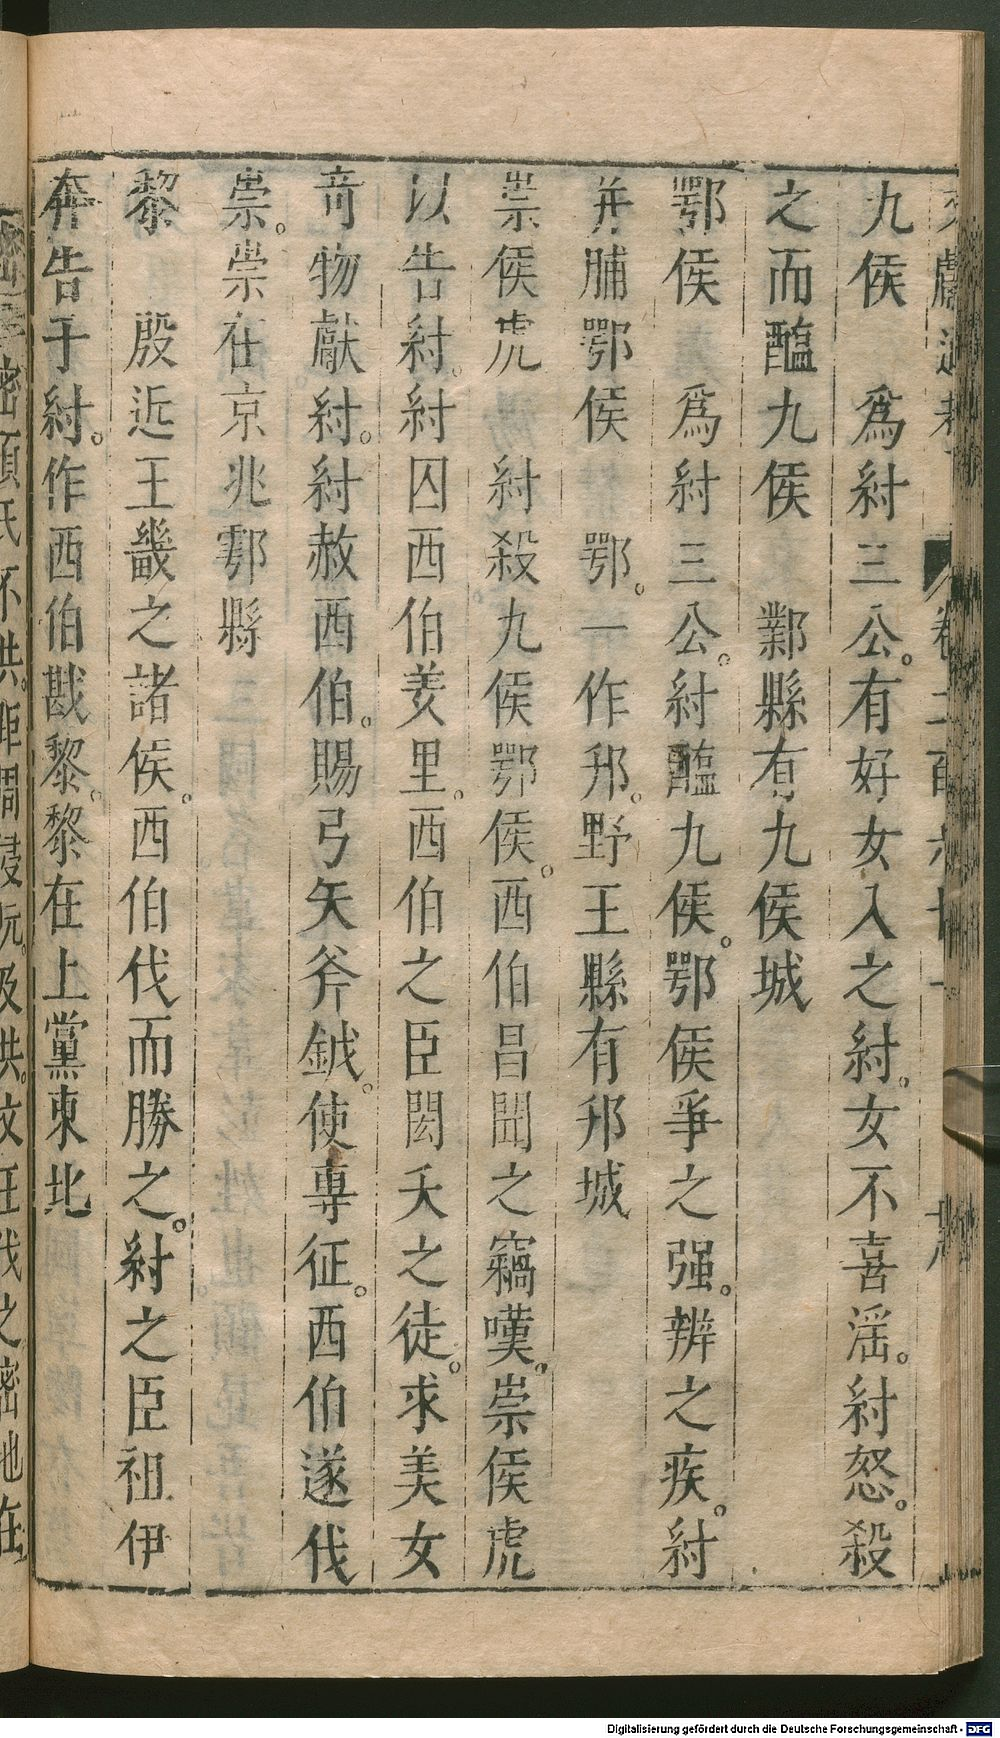 九侯　爲紂三公。有好女入之紂。女不喜淫。紂怒。殺
之而醢九侯　鄴縣有九侯城
鄂侯　爲紂三公。紂醢九侯。鄂侯爭之强。辨之疾。紂
并脯鄂侯　鄂。一作邘。野王縣有邘城
崇侯虎　紂殺九侯鄂侯。西伯昌聞之竊嘆。崇侯虎
以告紂。紂囚西伯羑里。西伯之臣閎夭之徒。求美女
奇物獻紂。紂赦西伯。賜弓矢斧鉞。使專征。西伯遂伐
崇。崇在京兆鄠縣
黎　殷近王畿之諸侯。西伯伐而勝之。紂之臣祖伊
奔告于紂。作西伯戡黎。黎在上黨東北
密須氏不共。距周侵阮。及共。文王伐之密地在
Digitalisierung gefördert durch die Deutsche Forschungsgemeinschaft - DFG